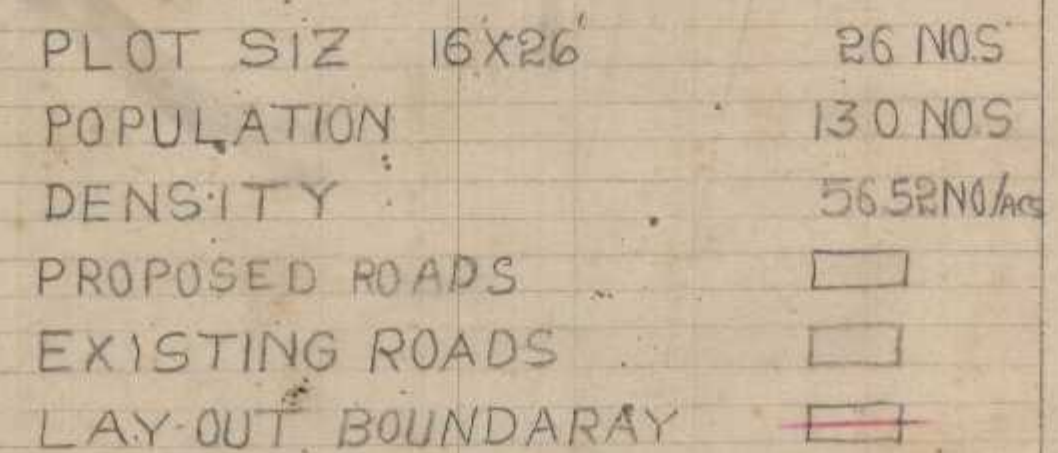 PLOT SIZ 16'X26' 26 NO.S
POPULATION 130 NO.S
DENSITY 56.52 NO/Acs
PROPOSED ROADS
EXISTING ROADS
LAY-OUT BOUNDARAY